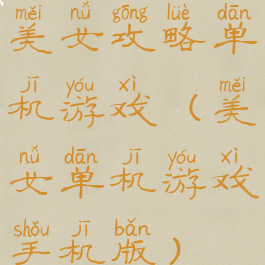 měi nǚ gōng lüè dān
美女攻略单
jī yóu xì měi
机游戏（美
nǚ dān jī yóu xì
女单机游戏
shǒu jī bǎn
手机版）